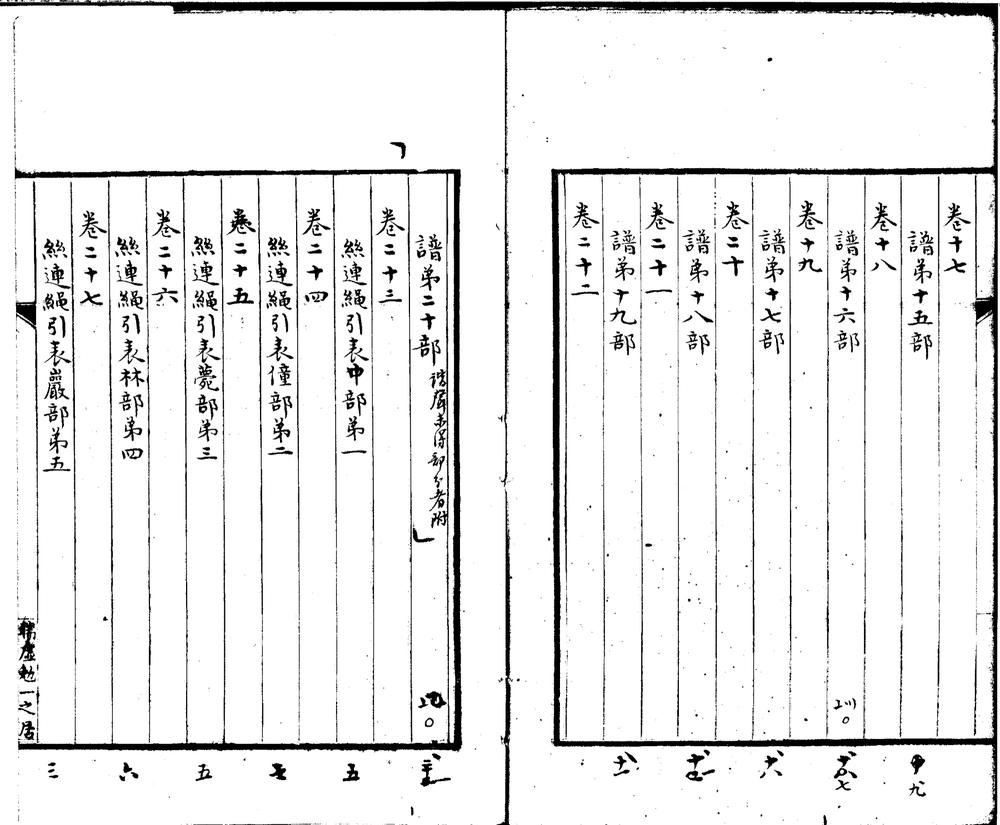 卷十七
譜第十五部
卷十八
譜第十六部
卷十九
譜第十七部
卷二十
譜第十八部
卷二十一
譜第十九部
卷二十二
譜第二十部 諧聲未保部分者附
卷二十三
絲連繩引表中部第一
卷二十四
絲連繩引表僮部第二
卷二十五
絲連繩引表薨部第三
卷二十六
絲連繩引表林部第四
卷二十七
絲連繩引表巖部第五
虛勉一之居
六
五
五
三